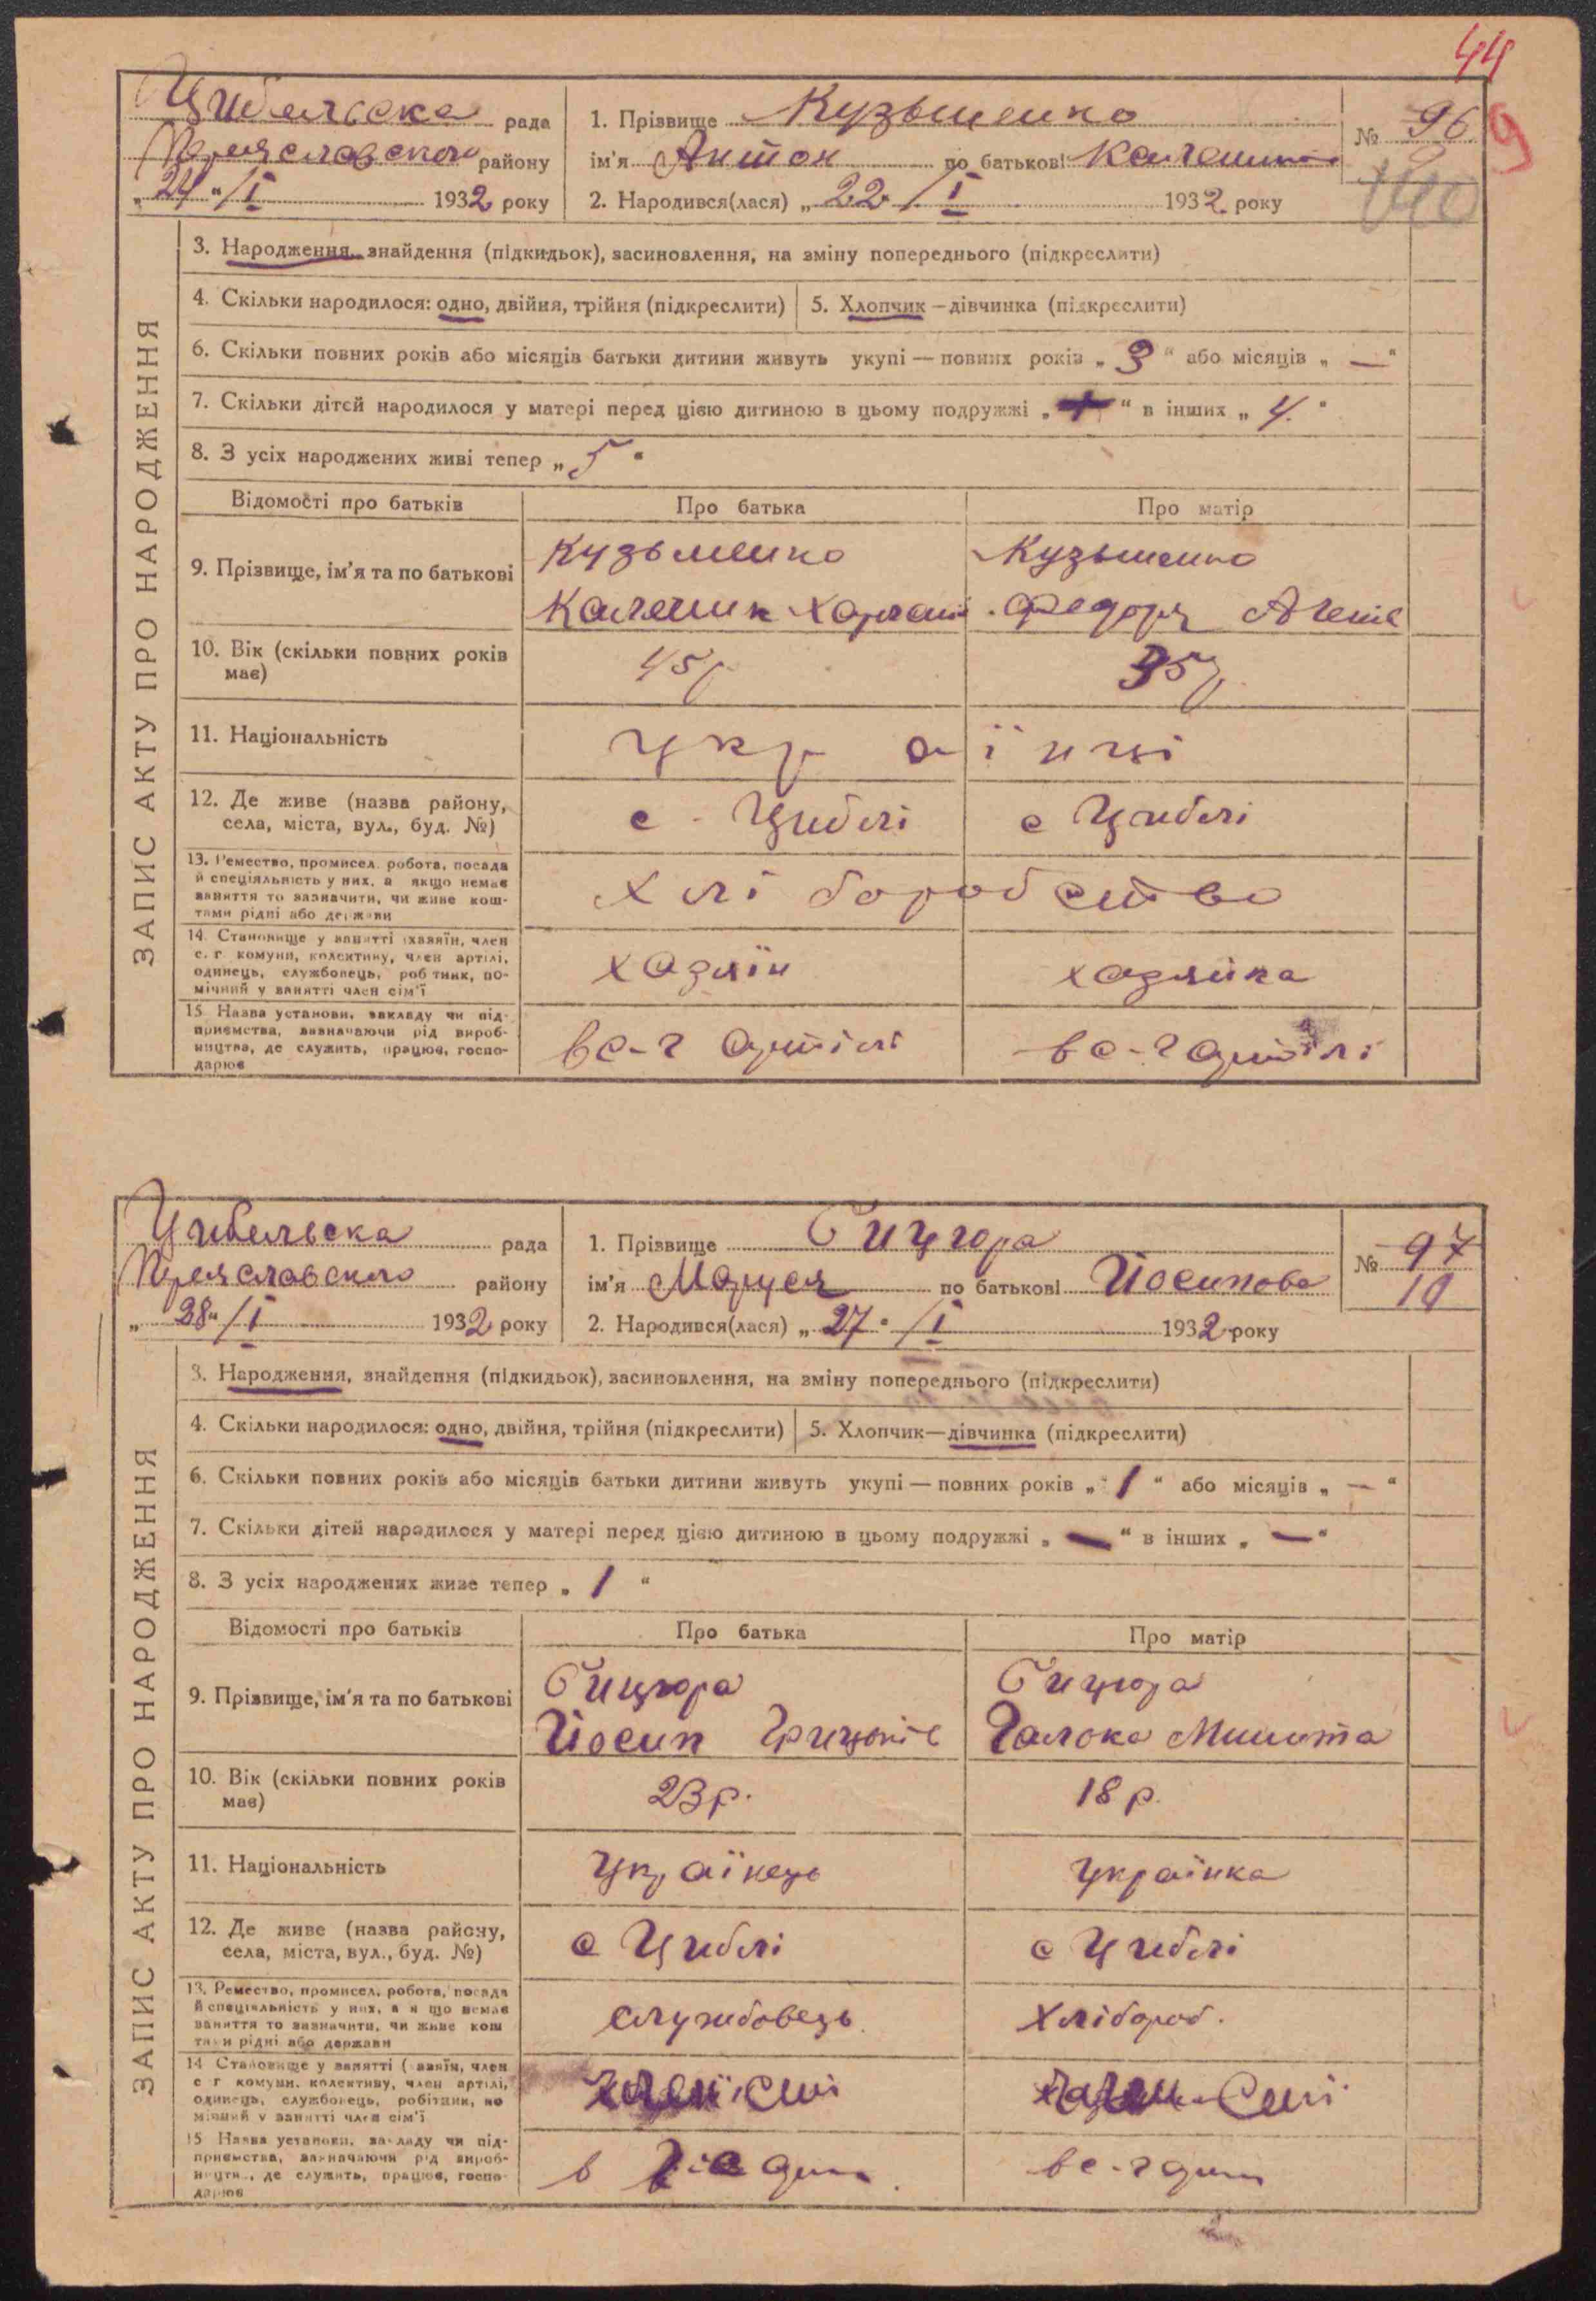 44
Цибельска рада
Переяславского району
„24“/I 1932 року
1. Прізвище Кузьменко
ім'я Антон по батькові
2. Народився(лася) „22/I 1932 року
№ 96
9
9
ЗАПИС АКТУ ПРО НАРОДЖЕННЯ
3. Народження, знайдення (підкидьок), засиновлення, на зміну попереднього (підкреслити)
4. Скільки народилося: одно, двійня, трійня (підкреслити)
5. Хлопчик—дівчинка (підкреслити)
6. Скільки повних років або місяців батьки дитини живуть укупі — повних років „3“ або місяців „—“
7. Скільки дітей народилося у матері перед цією дитиною в цьому подружжі „ “ в інших „4.“
8. З усіх народжених живі тепер „5“
Відомості про батьків
Про батька
Про матір
9. Прізвище, ім'я та по батькові
Кузьменко
Каленик
Кузьменко
Федора
10. Вік (скільки повних років має)
45р
35р
11. Національність
українці
12. Де живе (назва району, села, міста, вул., буд. №)
с. Циблі
с Циблі
13. Ремество, промисел, робота, посада
й спеціяльність у них, а якщо немає
заняття то зазначити, чи живе кош-
тами рідні або держави
хліборобство
14. Становище у занятті (хазяїн, член
с. г. комуни, колективу, член артілі,
одинець, службовець, робітник, по-
мічний у занятті член сім'ї
хазяїн
хазяйка
15. Назва установи, закладу чи під-
приємства, зазначаючи рід вироб-
ництва, де служить, працює, госпо-
дарює
в с-г артілі
в с-г артілі
Цибельска рада
Переяславского району
„28“/I 1932 року
1. Прізвище Гицюра
ім'я Маруся по батькові Йосипова
2. Народився(лася) „27“/I 1932 року
№ 97
10
ЗАПИС АКТУ ПРО НАРОДЖЕННЯ
3. Народження, знайдення (підкидьок), засиновлення, на зміну попереднього (підкреслити)
4. Скільки народилося: одно, двійня, трійня (підкреслити)
5. Хлопчик—дівчинка (підкреслити)
6. Скільки повних років або місяців батьки дитини живуть укупі — повних років „1“ або місяців „—“
7. Скільки дітей народилося у матері перед цією дитиною в цьому подружжі „—“ в інших „—“
8. З усіх народжених живе тепер „1“
Відомості про батьків
Про батька
Про матір
9. Прізвище, ім'я та по батькові
Гицюра
Йосип
Гицюра
10. Вік (скільки повних років має)
23р.
18р.
11. Національність
українець
українка
12. Де живе (назва району, села, міста, вул., буд. №)
с Циблі
с Циблі
13. Ремество, промисел, робота, посада
й спеціяльність у них, а якщо немає
заняття то зазначити, чи живе кош
тами рідні або держави
службовець
хлібороб.
14 Становище у занятті (хазяїн, член
с г комуни, колективу, член артілі,
одинець, службовець, робітник, по
мічний у занятті член сім'ї
15 Назва установи, закладу чи під-
приємства, зазначаючи рід вироб-
ництва, де служить, працює, госпо-
дарює
в
в с-г